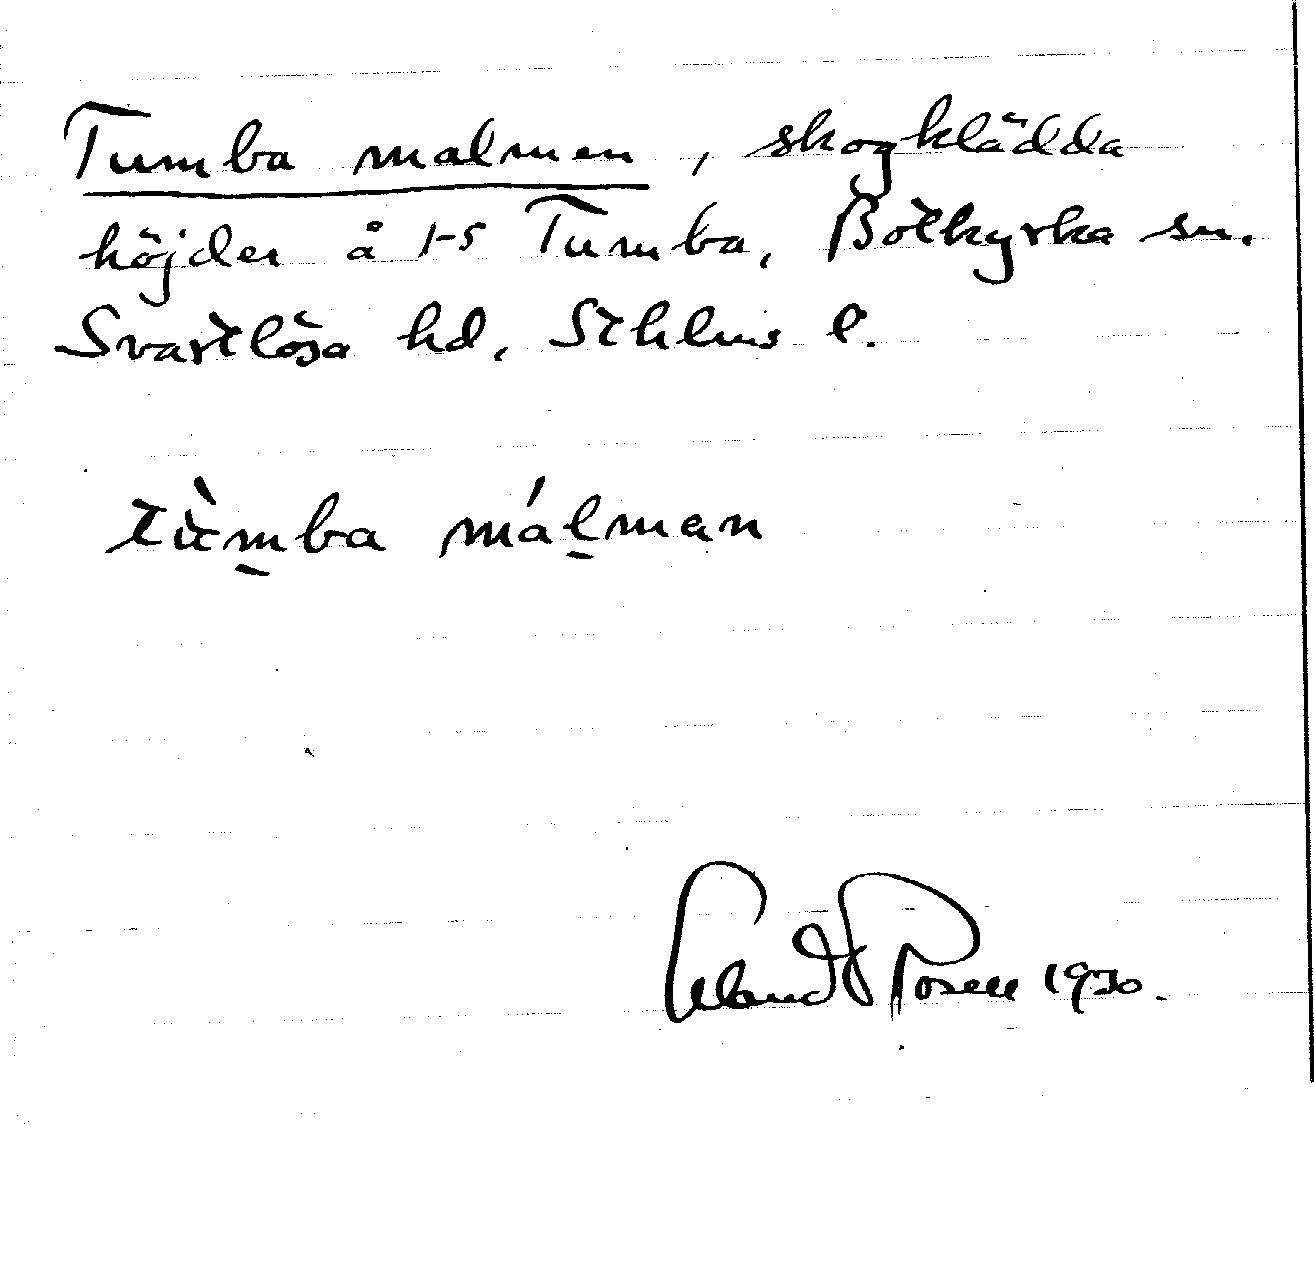 Tumba malmen, skogklädda
höjder å 1-5 Tumba, Botkyrka sn.
Svartlösa hd, Sthlms l.
tùm̱ba máḻman
Erland Rosell 1930.